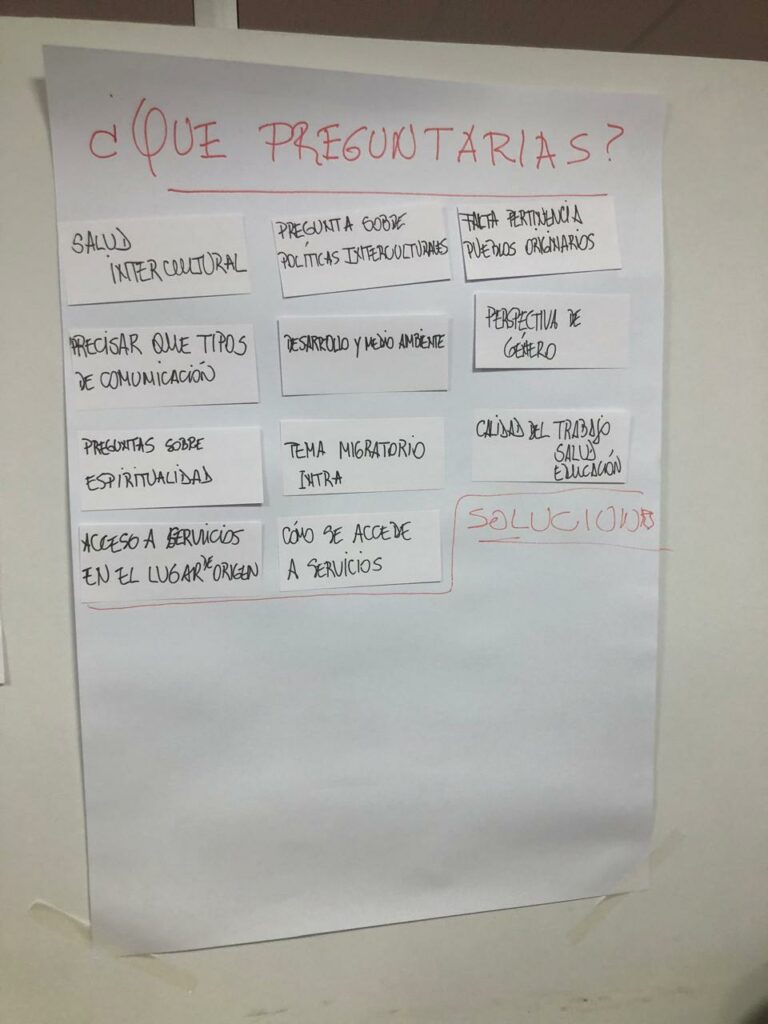 ¿QUE PREGUNTARIAS?
SALUD
INTERCULTURAL
PREGUNTA SOBRE
POLÍTICAS INTERCULTURALES
FALTA PERTINENCIA
PUEBLOS ORIGINARIOS
PRECISAR QUE TIPOS
DE COMUNICACIÓN
DESARROLLO Y MEDIO AMBIENTE
PERSPECTIVA DE
GÉNERO
PREGUNTAS SOBRE
ESPIRITUALIDAD
TEMA MIGRATORIO
INTRA
CALIDAD DEL TRABAJO
SALUD
EDUCACIÓN
ACCESO A SERVICIOS
EN EL LUGAR DE ORIGEN
CÓMO SE ACCEDE
A SERVICIOS
SOLUCIONES